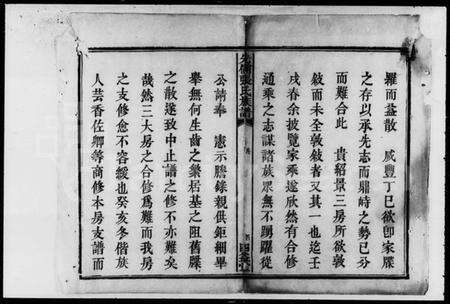 羅而益散 咸豐丁巳欲卽家牒
之存以承先志而鼎峙之勢已分
而難合此 貴紹景三房所欲敦
敍而未全敦敍者又其一也迄壬
戌春余披覽家乘遂欣然有合修
通乘之志謀諸族眾無不踴躍從
張氏族譜
公請奉 憲示謄錄親供鉅細畢
舉無何生齒之繁居基之阻舊牒
之散遂致中止譜之修不亦難矣
哉然三大房之合修爲難而我房
之支修愈不容緩也癸亥冬偕族
人芸香佐卿等商修本房支譜而